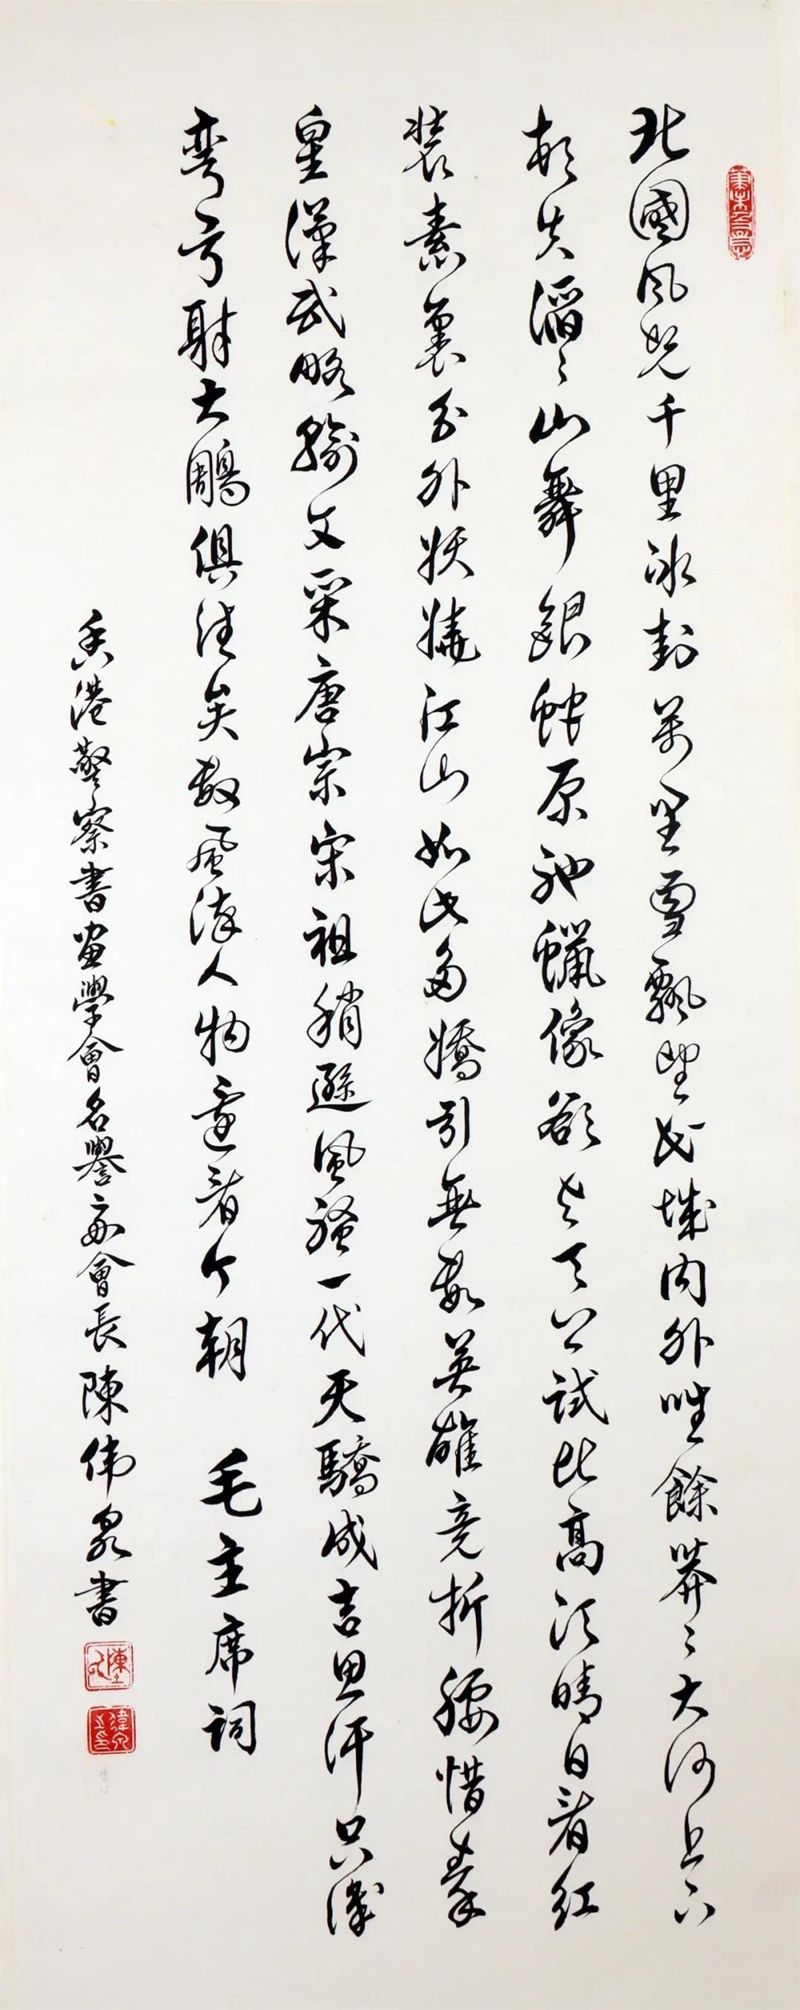 北國風光千里冰封萬里雪飄望長城內外唯餘莽〻大河上下
頓失滔〻山舞銀蛇原馳蠟像欲與天公試比高須晴日看紅
裝素裹分外妖嬈江山如此多嬌引無數英雄竞折腰惜秦
皇漢武略輸文采唐宗宋祖稍遜風騷一代天驕成吉思汗只識
弯弓射大鵰俱往矣數風流人物還看今朝 毛主席詞
香港警察書畫學會名譽會長陳偉泉書